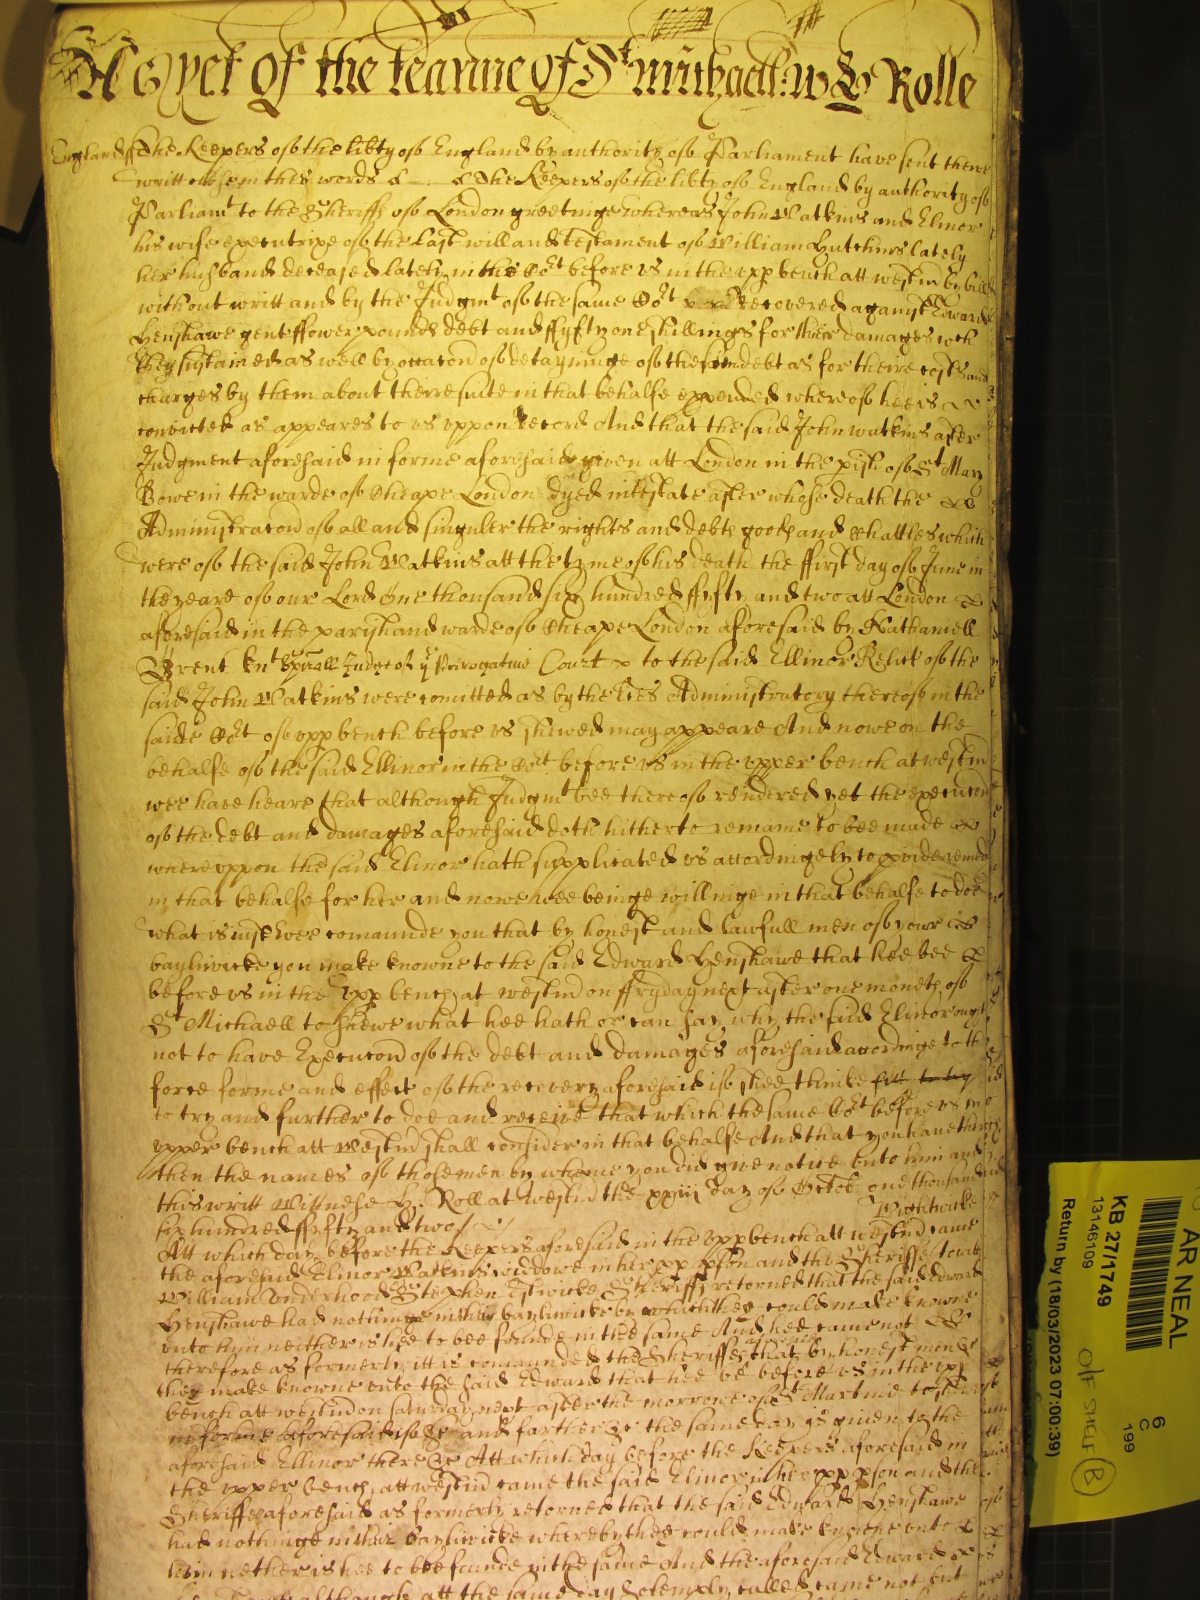 A Copet of the tearme of St Michaell: w & Rolle
England ss The Keepers of the libty of England by authority of Parliament have sent there
writt close in thes words & ___ & The Keepers of the libty of England by authority of
Parliamt to the Sheriffs of London greetinge whereas John Watkins and Elinor
his wife executrixe of the last will and testament of William Hutchins lately
her husband deceased lately in the Cort before us in the upp bench att westm by bill
without writt and by the Judgmt of the same Cort recovered against Edward
Henshawe gent ffower pounds debt and ffyfty one shillings for their damages wch
they sustained as well by occacon of detayninge of the debt as for theire costs and
charges by them about there suite in that behalfe expended whereof hee is
convicted as appeares to us uppon Record And that the said John watkins after
Judgment aforesaid in forme aforesaid given att London in the pish of St Mary
Bowe in the warde of Cheape London dyed intestate after whose death the
Administracon of all and singuler the rights and debts goods and Chattles which
were of the said John Watkins att the tyme of his death the ffirst day of June in
the yeare of our Lord One thousand six hundred ffyfty and two att London
aforesaid in the parish and warde of Cheape London aforesaid by Nathaniell
Brent Knt Judge of ye Prerogative Court to the said Ellinor Relict of the
said John Watkins were comitted as by the lres Administratory thereof in the
saide Cort of upp bench before us shewed may appeare And nowe on the
behalfe of the said Ellinor in the Cort before us in the upper bench at westm
wee have heare that although Judgmt bee thereof rendered yet the execucon
of the debt and damages aforesaid doth hitherto remaine to bee made
whereuppon the said Elinor hath supplicated us accordingely to pvide remedy
in that behalfe for her and nowe wee beinge willinge in that behalfe to doe
what is iust wee comaunde you that by honest and lawfull men of your
bayliwicke you make knowne to the said Edward Henshawe that hee bee
before us in the upp bench at westm on ffryday next after one moneth of
St Michaell to shewe what hee hath or can say why the said Elinor ought
not to have Execucon of the debt and damages aforesaid accordinge to the
force forme and effect of the recovery aforesaid if shee thinke fitt to try
to try and further to doe and receive that which the same Cort before us in
upper bench att Westm shall consider in that behalfe And that you have there
then the names of those men by whome you did give notice unto him and
this writt Wittnesse H: Roll at westm the xxiii day of Octob one thousand
six hundred ffyfty and two
Att which day before the Keepers aforesaid in the upp bench att westm came
the aforesaid Elinor Watkins widdowe in her pp pson and the Sheriffs towitt
William Underwood Stephen Estwicke Sheriffs retorned that the said Edward
Henshawe had nothinge in their bayliwicke by which they could make knowne
unto him neither is hee to bee founde in the same And hee came not
therefore as formerly itt is comaunded the Sheriffes that by honest men &c
they make knowne unto the said Edward that hee be before us in the upp
bench att westm on saturday next after the morrowe of St Martine to shewe
in forme aforesaid if &c and farther &c the same day is given to the
aforesaid Ellinor there &c Att which day before the Keepers aforesaid in
the upper bench att westm came the said Elinor in her pp pson and the
Sheriffe aforesaid as formerly retorned that the said Edward Henshawe
had nothinge in their bayliwicke whereby they could make knowne unto
him nether is hee to bee founde in the same And the aforesaid Edward
att the same day Solemply called came not but
AR NEAL
KB 27/1749
13146109
Return by (18/03/2023 07:00:39)
O/F SHELF B
6
C
199